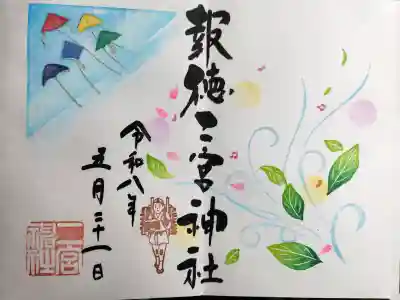 報徳二宮神社
令和八年
五月
二宮
神社